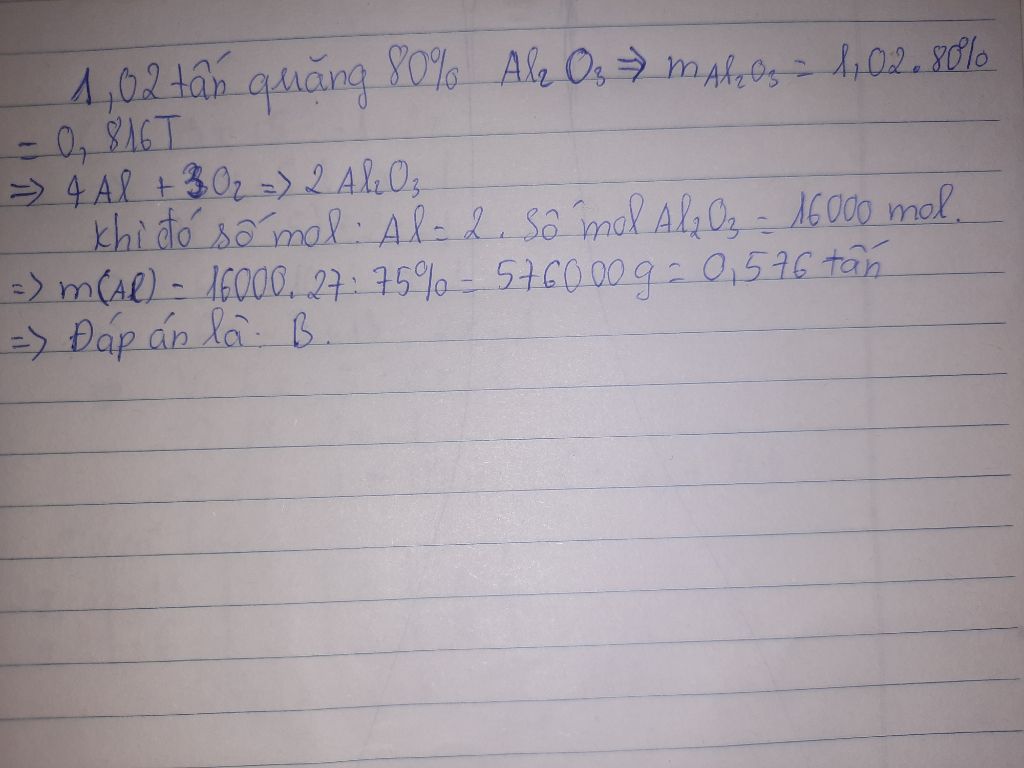 1,02 tấn quặng 80% Al₂O₃ ⇒ mAl₂O₃ = 1,02.80%
= 0,816T
⇒ 4Al + 3O₂ ⇒ 2Al₂O₃
khi đó số mol: Al = 2. Số mol Al₂O₃ = 16000 mol.
⇒ m(Al) = 16000.27:75% = 576000g = 0,576 tấn
⇒ Đáp án là: B.